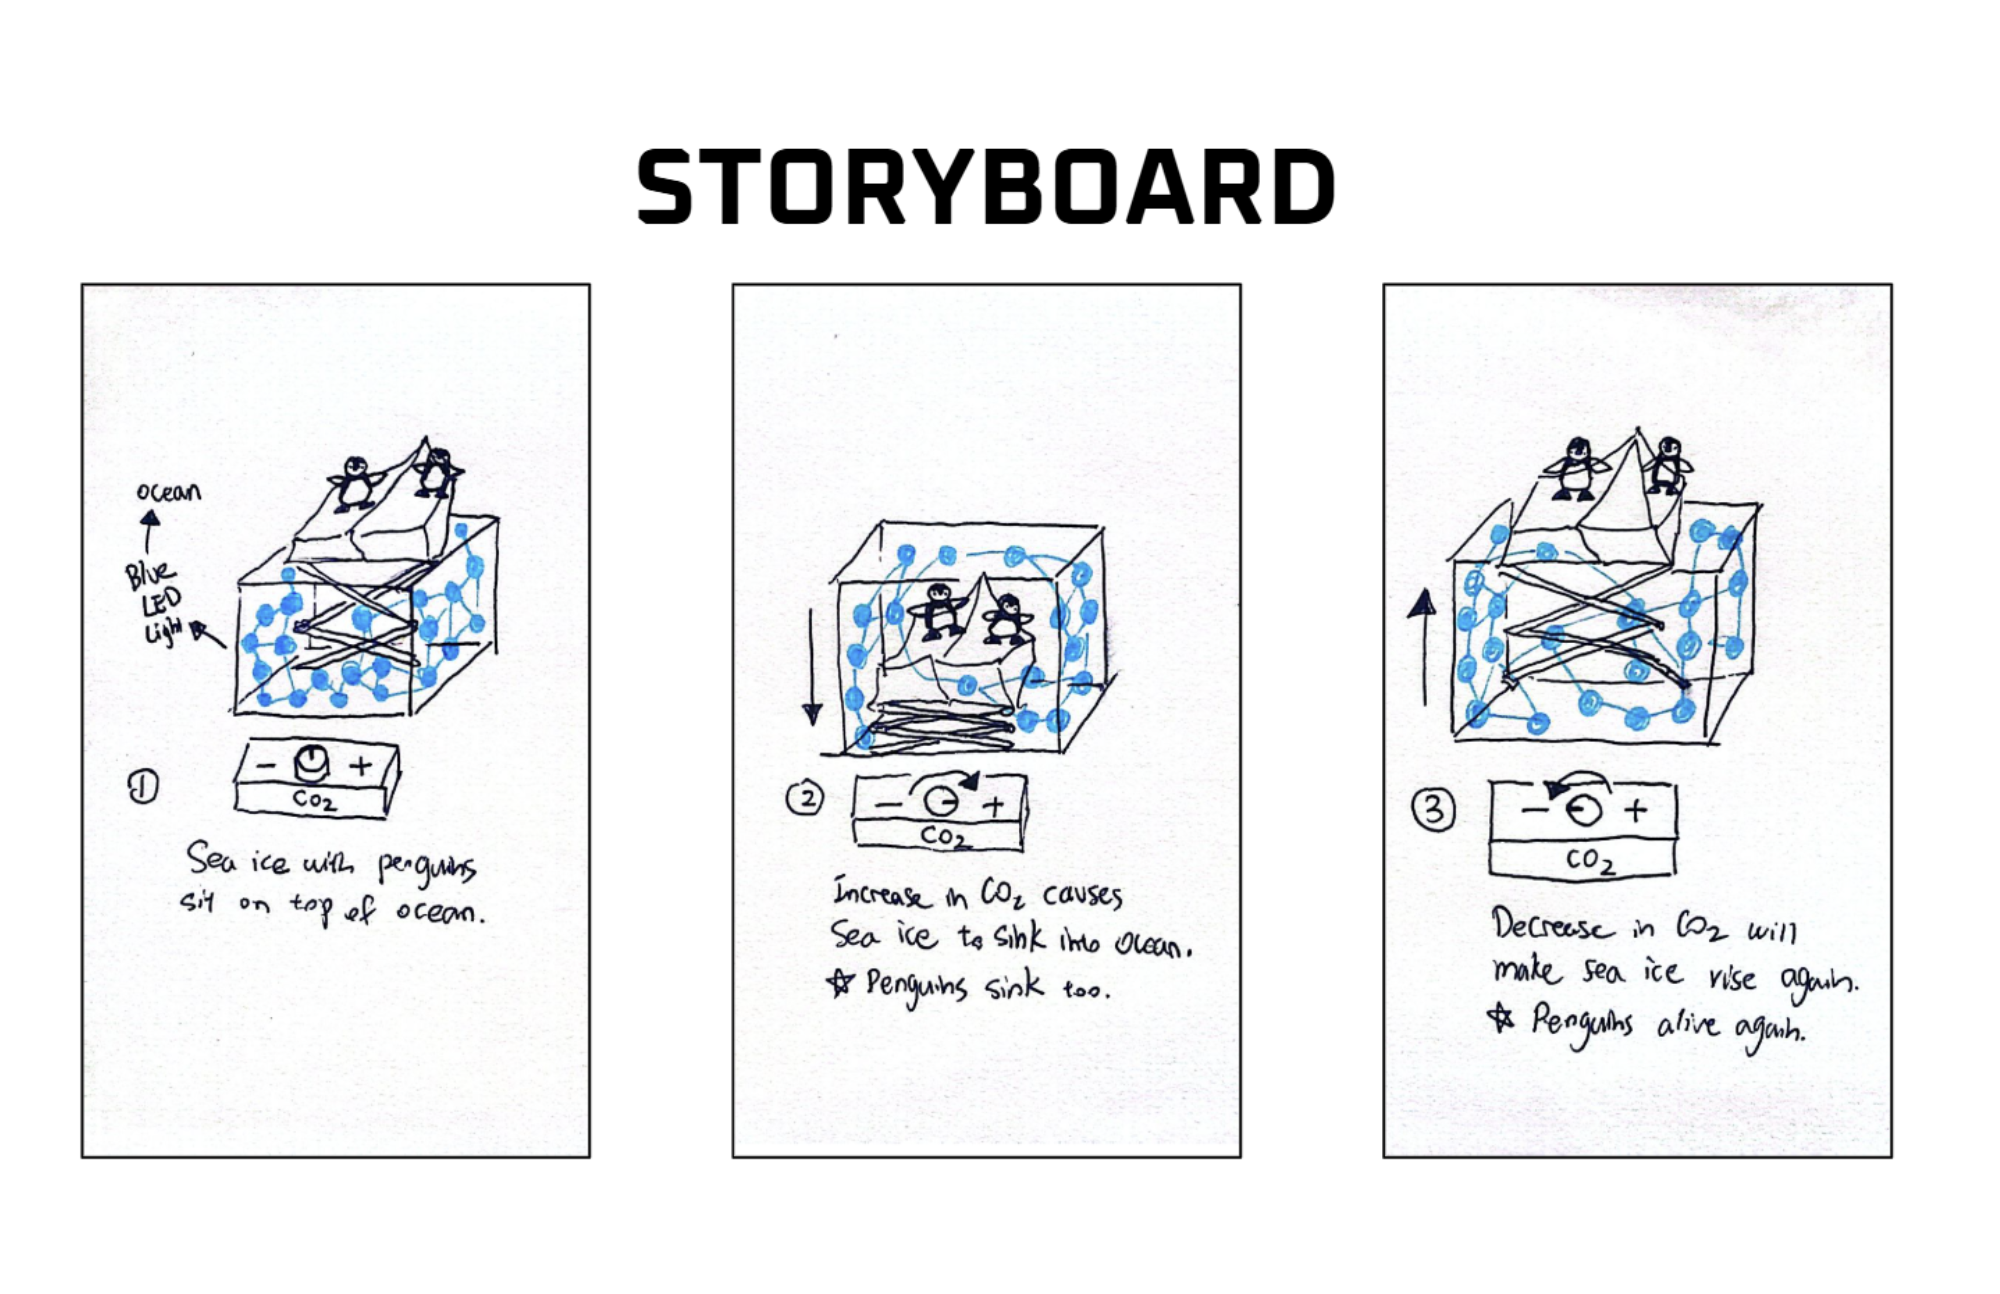 STORYBOARD
Ocean
Blue
LED
Light
- +
CO2
1
Sea ice with penguins
sit on top of ocean.
- +
2
CO2
Increase in CO2 causes
Sea ice to sink into ocean.
☆ Penguins sink too.
- +
3
CO2
Decrease in CO2 will
make sea ice rise again.
☆ Penguins alive again.